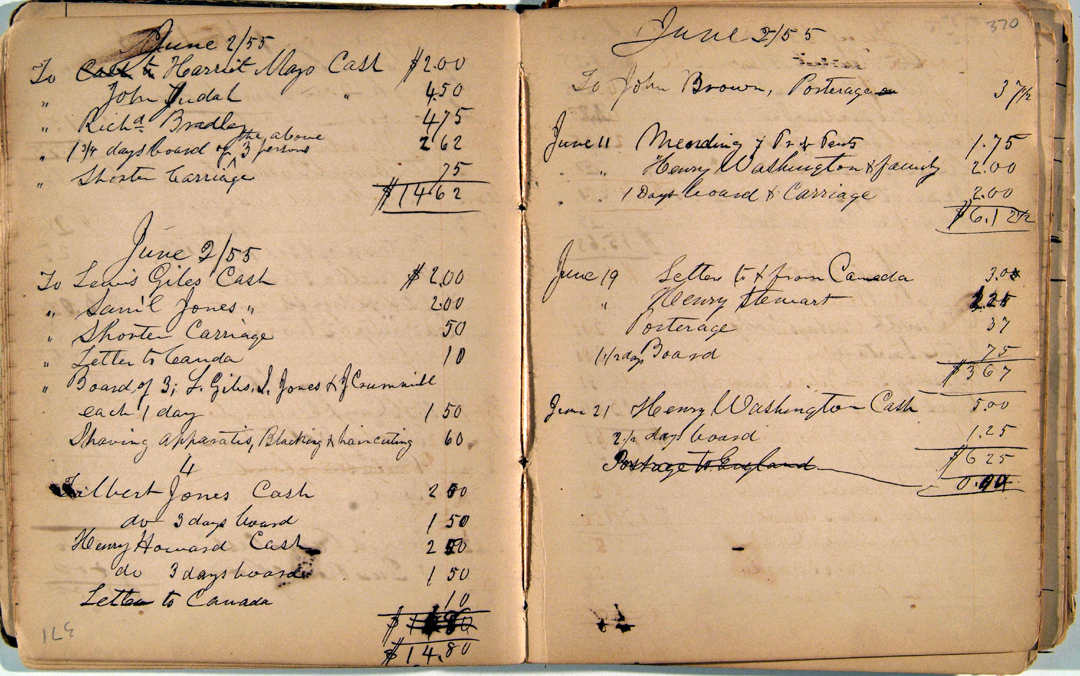 June 2/55
To Cash to Harriet Mayo Cash $2.00
" John Judah " 4.50
" Richd Bradley 4 75
" 1 3/4 days board of the above 3 persons 2 62
" Shorter Carriage 75
$14 62
June 2/55
To Lewis Giles Cash $2.00
" Saml Jones " 2.00
" Shorter Carriage 50
" Letter to Canda 10
" Board of 3; L. Giles, S. Jones & J Crummill
each 1 day 1 50
Shaving apparatis, Blacking & haircuting 60
4
Filbert Jones Cash 2 50
do 3 days board 1 50
Henry Howard Cash 2 50
do 3 days board 1 50
Letter to Canada 10
$14.80
371
370
June 2/55
To John Brown, Posterage 37 1/2
June 11 Mending 7 Pr & Pants 1.75
" " Henry Washington & family 2.00
" " 1 Days board & Carriage 2.00
$6.12 1/2
June 19 Letter to & from Canada 3.00
" Henry Stewart 2 25
Posterage 37
1 1/2 day Board 75
$3 67
June 21 Henry Washington Cash 5.00
2 1/2 days board 1.25
$6 25
Postage to England